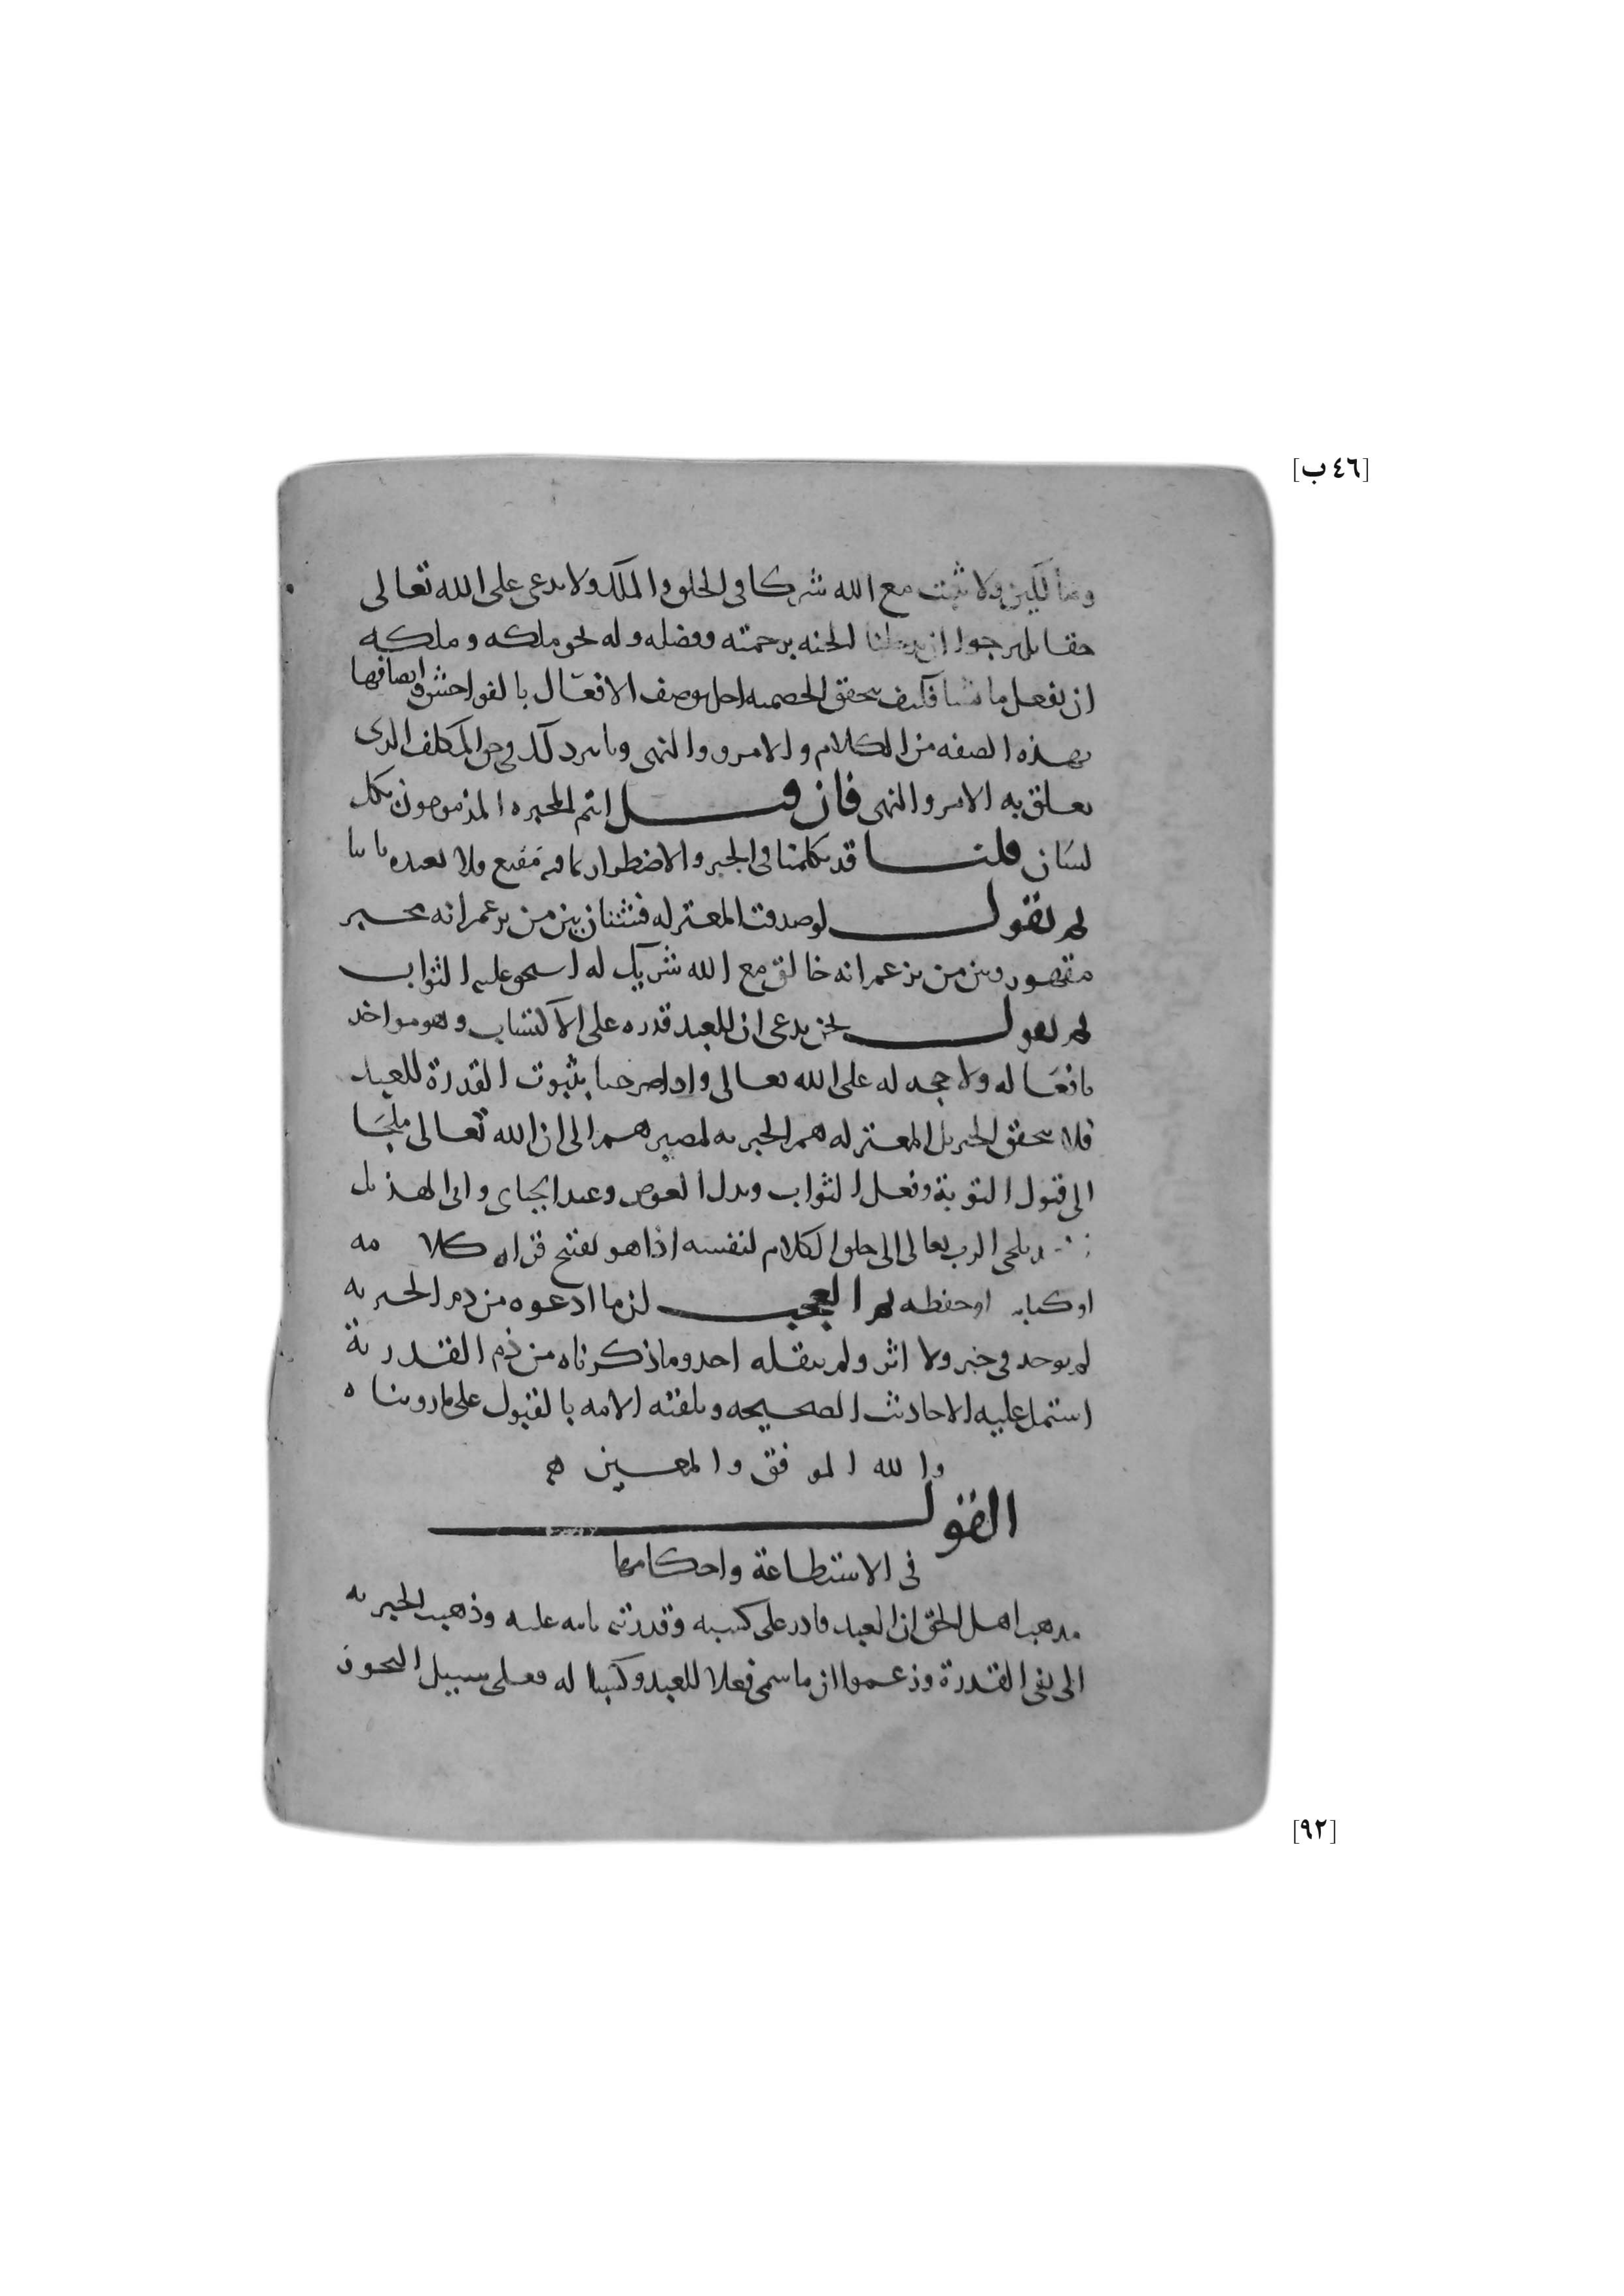 [٤٦ ب]
ولا نثبت مع الله شريكا في الخلق والملك ولا ندعي على الله تعالى
حقا بل نرجوا ان يدخلنا الجنه برحمته وفضله وله بحق ملكه وملكه
ان يفعل ما يشا فكيف يتحقق الخصميه احل بوصف الافعال بالفواحش واتصافها
بهذه الصفه من الكلام والامر والنهي وما يرد ذلك في حق المكلف الذي
تعلق به الامر والنهي فان قيل انتم المجبره المذمومون بكل
لسان قلنا قد تكلمنا في الجبر والاضطرار بما فيه مقنع ولا نعيده ثانيا
ثم نقول لو صدقت المعتزله فشتان بين من يزعم انه مجبر
مقهور وبين من يزعم انه خالق مع الله شريك له استحق عليه الثواب
ثم نقول نحن ندعي ان للعبد قدره على الاكتساب وهو مواخذ
بافعاله ولا حجه له على الله تعالى واذا صرحنا بثبوت القدرة للعبد
فلا يتحقق الجبر بل المعتزله هم الجبريه لمصيرهم الى ان الله تعالى ملجا
الى قبول التوبة وفعل الثواب وبدل العوض وعند الجباي وابي الهذيل
يلجي الرب تعالى الى خلق الكلام لنفسه اذا هو افتتح قراه كلامه
او كتابه او حفظه ثم العجب ان ما ادعوه من ذم الجبريه
لم يوجد في خبر ولا اثر ولم ينقله احد وما ذكرناه من ذم القدرية
اشتمل عليه الاحاديث الصحيحه وتلقته الامه بالقبول على ما رويناه
والله الموفق والمعين
القول
في الاستطاعة واحكامها
مذهب اهل الحق ان العبد قادر على كسبه وقدرته ثابته عليه وذهبت الجبريه
الى نفي القدرة وزعموا ان ما سمي فعلا للعبد وكسبا له فعلى سبيل التجوز
[٩٢]